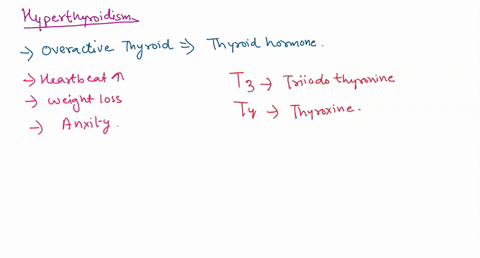 Hyperthyroidism
→ Overactive Thyroid ⇒ Thyroid hormone.
→ Heartbeat ↑
→ weight loss
→ Anxity.
T3 → Triiodo thyronine
T4 → Thyroxine.